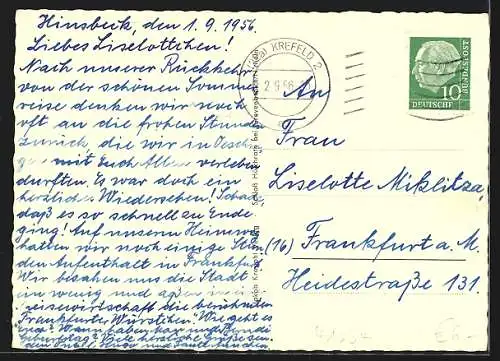 Hinsbeck, den 1. 9. 1956.
Liebes Liselottchen!
Nach unserer Rückkehr
von der schönen Sommer
reise denken wir noch
oft an die frohen Stunden
zurück, die wir in Oesch
mit Euch Allen verleben
durften. Es war doch ein
herzliches Wiedersehen! Schad
daß es so schnell zu Ende
ging! Auf unserm Heimweg
hatten wir noch einige Stun
den Aufenthalt in Frankfurt
Wir besahen uns die Stadt
ein wenig und aßen in
wirtschaft die berühmten
Frankfurter Würstchen. Wie geht es
Geburtstag? Viele herzliche Grüße sen
den
KREFELD 2
2. 9. 56
BUNDESPOST
10
DEUTSCHE
An
Frau
Liselotte Miklitza,
(16) Frankfurt a. M.
Heidestraße 131.
Schloß Krickenbeck